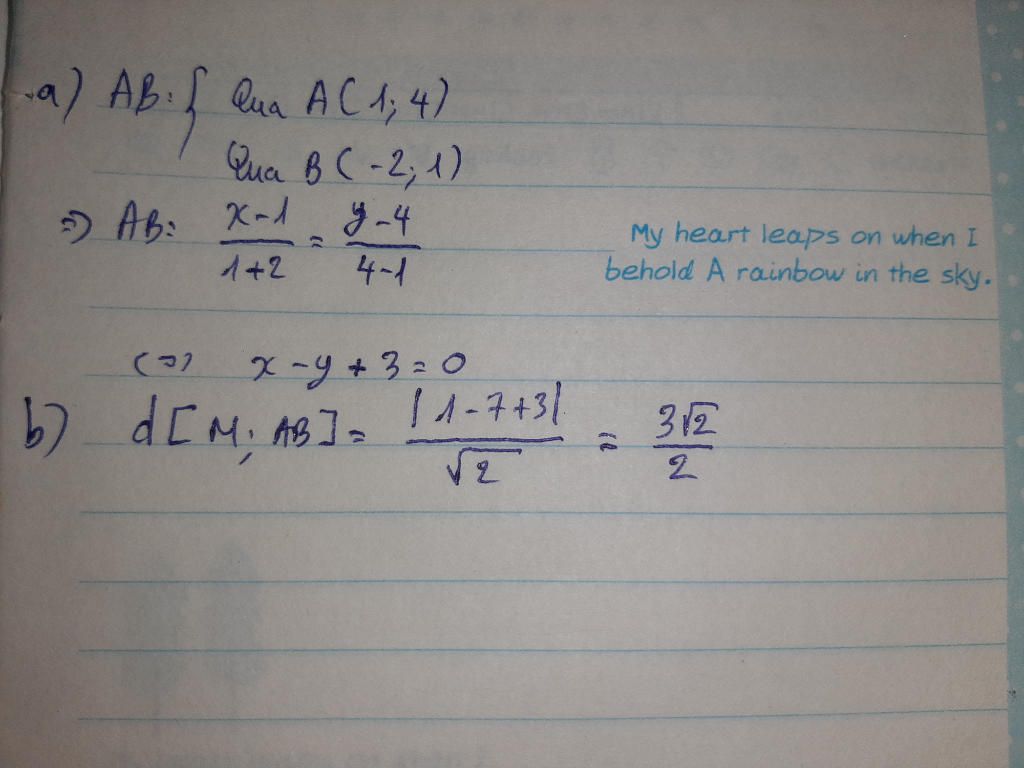 a) AB: { Qua A(1; 4)
Qua B(-2; 1)
=> AB: (x-1)/(1+2) = (y-4)/(4-1)
My heart leaps on when I
behold A rainbow in the sky.
<=> x - y + 3 = 0
b) d[M; AB] = |1-7+3|/√2 = 3√2/2